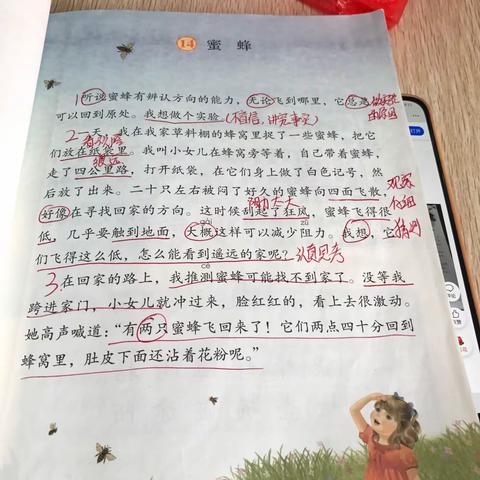 14 蜜蜂
1 听说蜜蜂有辨认方向的能力，无论飞到哪里，它总是
可以回到原处。我想做个实验。
2 一天，我在我家草料棚的蜂窝里捉了一些蜜蜂，把它
们放在纸袋里。我叫小女儿在蜂窝旁等着，自己带着蜜蜂，
走了四公里路，打开纸袋，在它们身上做了白色记号，然
很远
后放了出来。二十只左右被闷了好久的蜜蜂向四面飞散，
观察
阻力大大
好像在寻找回家的方向。这时候刮起了狂风，蜜蜂飞得很
仔细
低，几乎要触到地面，大概这样可以减少阻力。我想，它
猜测
们飞得这么低，怎么能看到遥远的家呢？
认真思考
cè
3 在回家的路上，我推测蜜蜂可能找不到家了。没等我
跨进家门，小女儿就冲过来，脸红红的，看上去很激动。
她高声喊道：“有两只蜜蜂飞回来了！它们两点四十分回到
蜂窝里，肚皮下面还沾着花粉呢。”